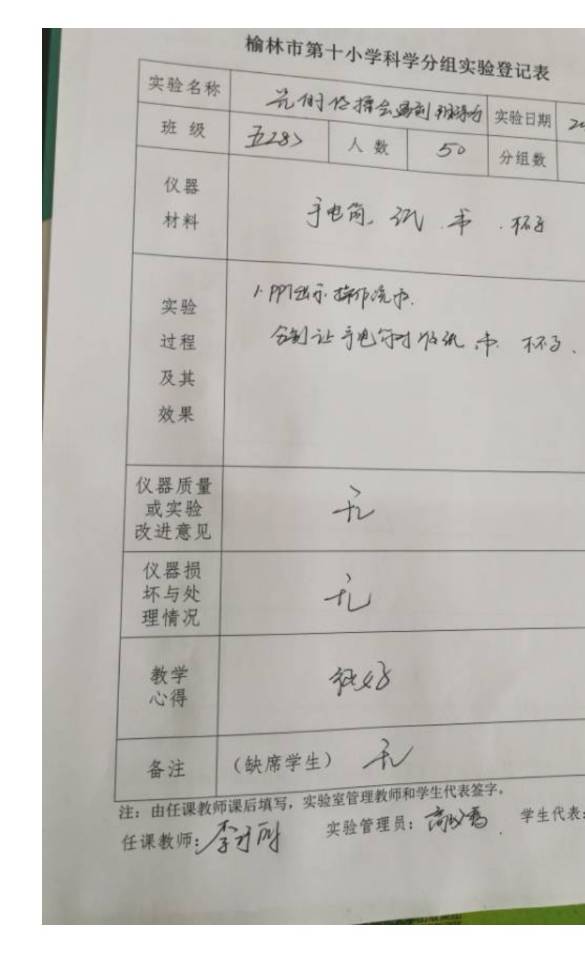 榆林市第十小学科学分组实验登记表
实验名称 光的传播会遇到 实验日期 20
班 级 五28> 人 数 50 分组数
仪器
材料
手电筒、纸、书、杯子
实验
过程
及其
效果
1. PPT出示操作
分别让手电筒 纸、书、杯子、
仪器质量
或实验
改进意见
无
仪器损
坏与处
理情况
无
教学
心得
较好
备注 (缺席学生) 无
注:由任课教师课后填写,实验室管理教师和学生代表签字。
任课教师:李 实验管理员:高 学生代表: